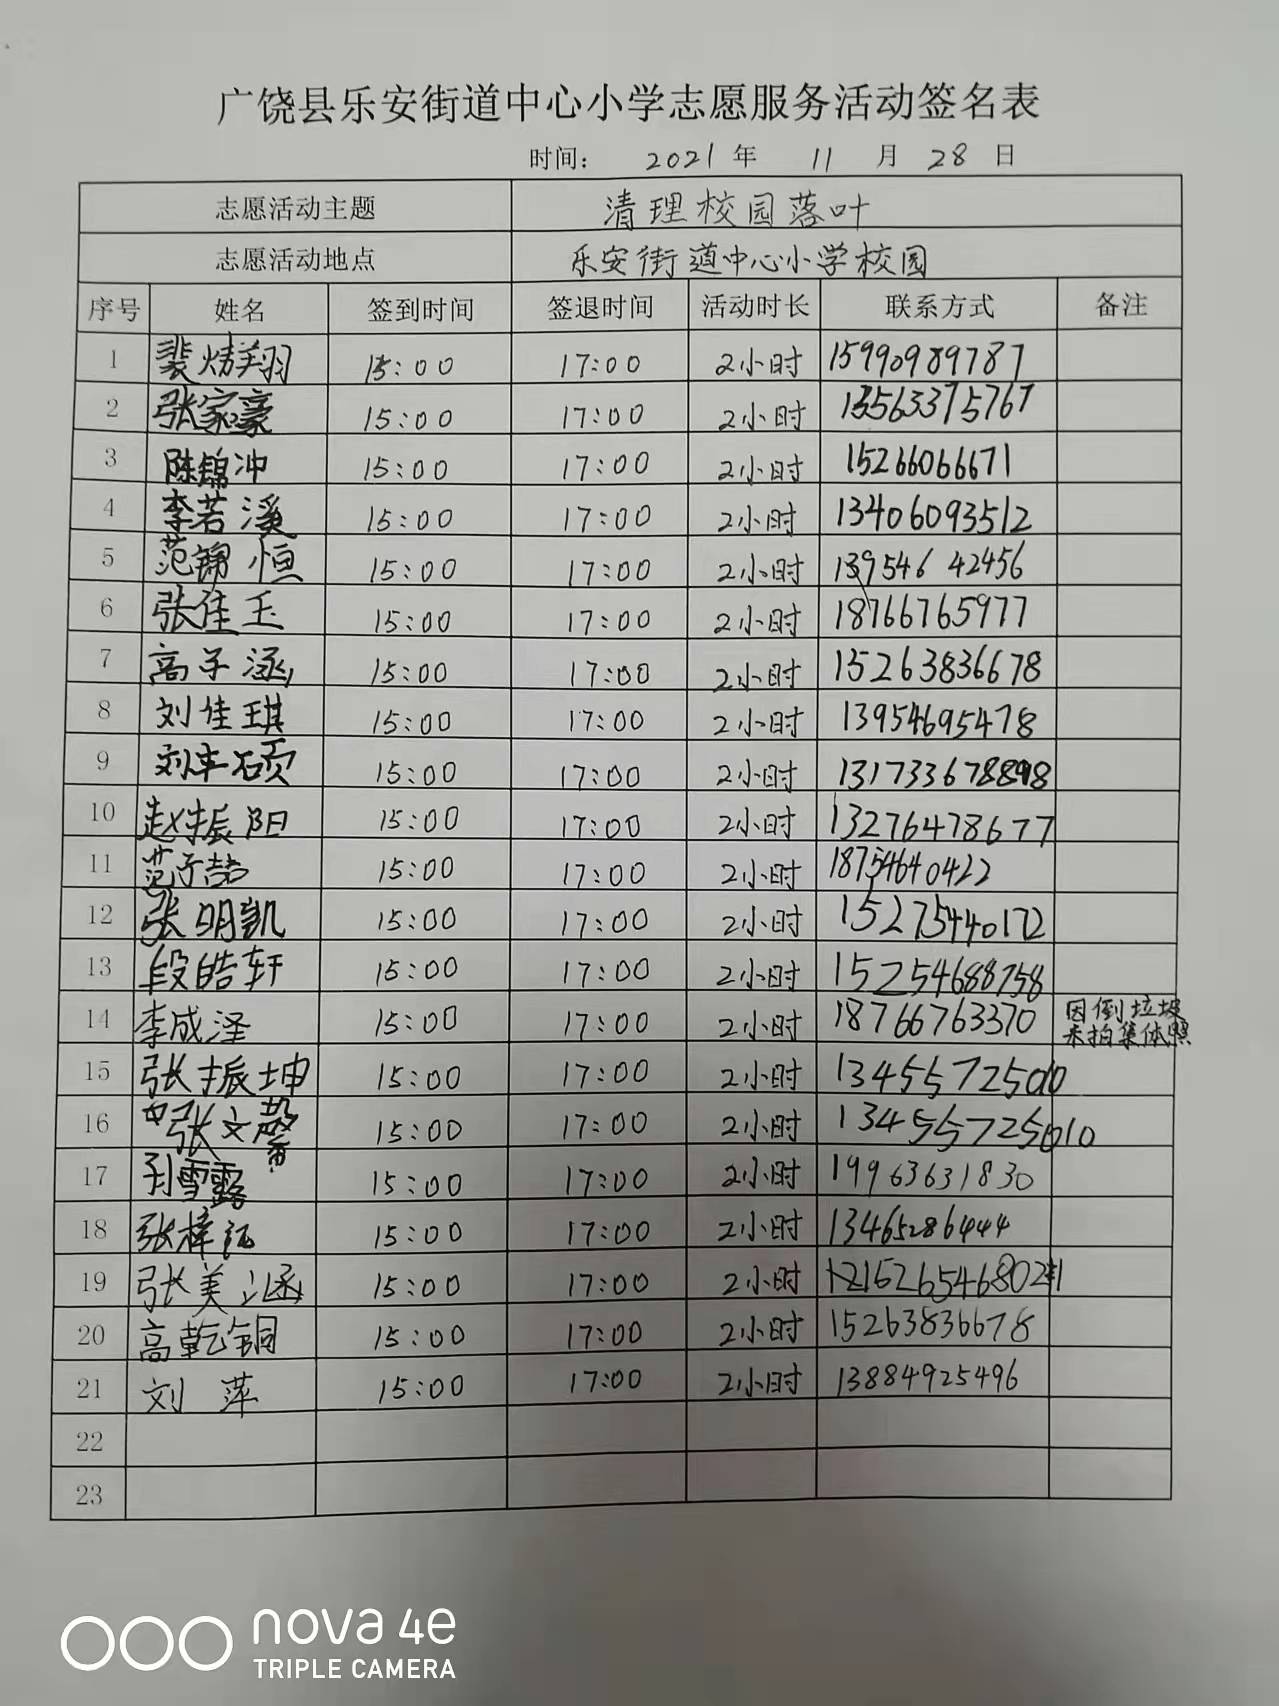 广饶县乐安街道中心小学志愿服务活动签名表
时间： 2021 年 11 月 28 日
志愿活动主题 清理校园落叶
志愿活动地点 乐安街道中心小学校园
序号 姓名 签到时间 签退时间 活动时长 联系方式 备注
1 翔 15:00 17:00 2小时 15990989787
2 张家豪 15:00 17:00 2小时 13563375767
3 陈锦冲 15:00 17:00 2小时 15266066671
4 李若溪 15:00 17:00 2小时 13406093512
5 范锦恒 15:00 17:00 2小时 13954642456
6 张佳玉 15:00 17:00 2小时 18766765977
7 高子涵 15:00 17:00 2小时 15263836678
8 刘佳琪 15:00 17:00 2小时 13954695478
9 刘丰硕 15:00 17:00 2小时
10 赵振阳 15:00 17:00 2小时 13276478677
11 范子喆 15:00 17:00 2小时 18754640422
12 张明凯 15:00 17:00 2小时 15275440172
13 段皓轩 15:00 17:00 2小时 15254688758
14 李成泽 15:00 17:00 2小时 18766763370 因倒垃圾
未拍集体照
15 张振坤 15:00 17:00 2小时
16 张文馨 15:00 17:00 2小时
17 孙雪露 15:00 17:00 2小时 19963631830
18 张梓 15:00 17:00 2小时 13465286444
19 张美涵 15:00 17:00 2小时
20 高乾铜 15:00 17:00 2小时 15263836678
21 刘萍 15:00 17:00 2小时 13884925496
22
23
nova 4e
TRIPLE CAMERA